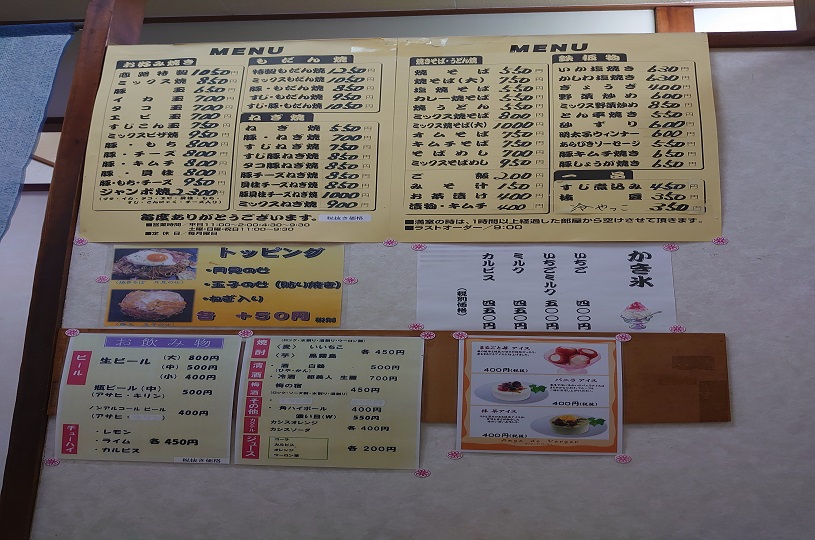 MENU
お好み焼き
恋路特製 1050円
ミックス焼 850円
豚玉 650円
イカ玉 700円
タコ玉 700円
エビ玉 700円
すじこん玉 750円
ミックスピザ焼 950円
豚・もち 800円
豚・チーズ 800円
豚・キムチ 800円
豚・貝柱 800円
豚・もち・チーズ 950円
ジャンボ焼 2200円
毎度ありがとうございます。
税抜き価格
■営業時間/平日11:00~2:00/4:30~9:30
土曜・日曜・祝日11:00~9:30
■定休日 毎月曜日
もだん焼
特製もだん焼 1250円
ミックスもだん焼 1050円
豚・もだん焼 850円
すじ・もだん焼 950円
すじ・豚もだん焼 1050円
ねぎ焼
ねぎ焼 550円
豚・ねぎ焼 700円
すじねぎ焼 750円
すじ豚ねぎ焼 850円
タコ豚ねぎ焼 850円
豚チーズねぎ焼 850円
貝柱チーズねぎ焼 850円
豚貝柱チーズねぎ焼 1000円
ミックスねぎ焼 900円
MENU
焼きそば・うどん焼
焼そば 550円
焼そば(大) 750円
塩焼そば 550円
カレー焼そば 550円
焼うどん 550円
ミックス焼そば 800円
ミックス焼そば(大) 1000円
オムそば 750円
キムチそば 750円
そばめし 700円
ミックスそばめし 950円
ご飯 200円
みそ汁 150円
お茶漬け 400円
漬物・キムチ 400円
鉄板物
いか塩焼き 630円
かしわ塩焼き 630円
ぎょうざ 400円
野菜炒め 600円
ミックス野菜炒め 850円
とん平焼き 550円
砂ずり 600円
明太子ウィンナー 600円
あらびきソーセージ 550円
豚キムチ焼き 650円
豚しょうが焼き 650円
一品
すじ煮込み 450円
枝豆 350円
冷やっこ 350円
■満室の時は、1時間以上経過した部屋から空けさせて頂きます。
■ラストオーダー/9:00
トッピング
・月見のせ
・玉子のせ(貼り焼き)
・ねぎ入り
各+50円 税別
かき氷
いちご 四〇〇円
いちごミルク 五〇〇円
ミルク 四五〇円
カルピス 四五〇円
(税別価格)
お飲み物
ビール
生ビール (大) 800円
(中) 500円
(小) 400円
瓶ビール(中) 500円
(アサヒ・キリン)
ノンアルコール ビール 400円
(アサヒ
チューハイ
・レモン
・ライム 各450円
・カルピス
税抜き価格
焼酎
(麦) いいちこ
(芋) 黒霧島
各450円
清酒
・酒 白鶴 500円
(ひや・かん)
・冷酒 超美人 生酒 700円
梅酒
梅の宿 450円
その他
・角ハイボール 400円
濃い目(W) 550円
カクテル
カシスオレンジ
カシスソーダ
各400円
ジュース
コーラ
カルピス
オレンジ
ウーロン茶
各200円
まるごと苺アイス
400円(税抜)
バニラアイス
400円(税抜)
抹茶アイス
400円(税抜)